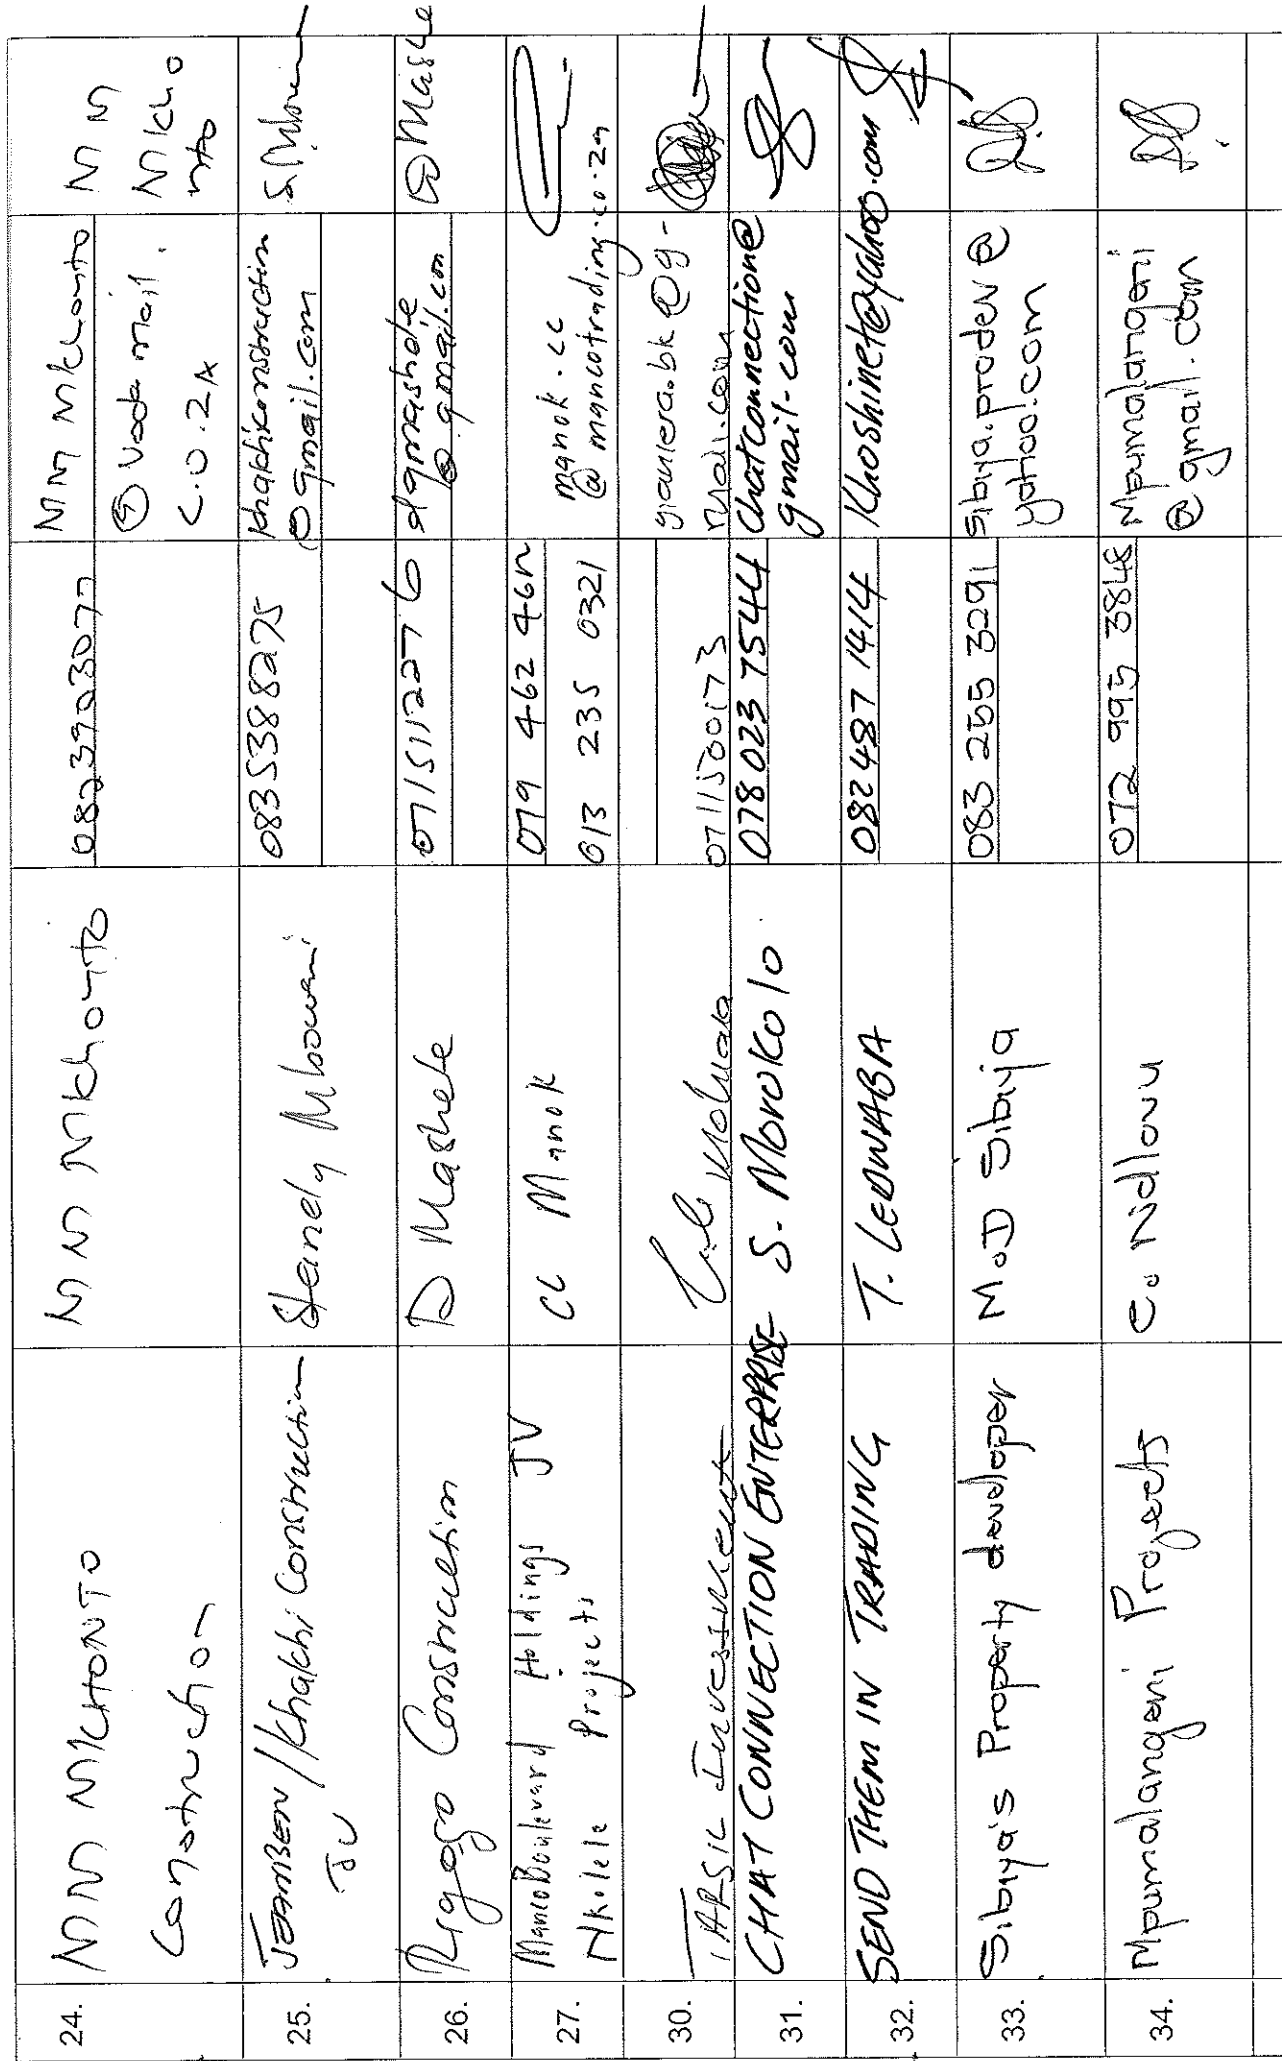 24.
MM MKHONTO
Construction
MM Mkhonto
0823923077
MM Mkhonto
@ Vodamail.
co.za
MM
Mkho
nto
25.
/Khakhi Construction
JV
0835388275
khakhiconstruction
@gmail.com
26.
Construction
D Mashele
0715112276
dgmashele
@gmail.com
D Mashe
27.
MancoBoulevard Holdings JV
Nkolele Projects
CC Manok
079 462 462
013 235 0321
manok.cc
@mancotrading.co.za
30.
TARSIL Investment
0711500173
@g-
mail.com
31.
CHAT CONNECTION ENTERPRISE
S. Morokolo
078 023 7544
Chatconnection@
gmail.com
32.
SEND THEM IN TRADING
T. LEDWABA
082 487 1414
Khoshinet@yahoo.com
33.
Sibiya's Property developer
M.D Sibiya
083 255 3291
sibiya.prodev@
yahoo.com
34.
Mpumalangeni Projects
C. Ndlovu
072 995 3848
Mpumalangeni
@gmail.com